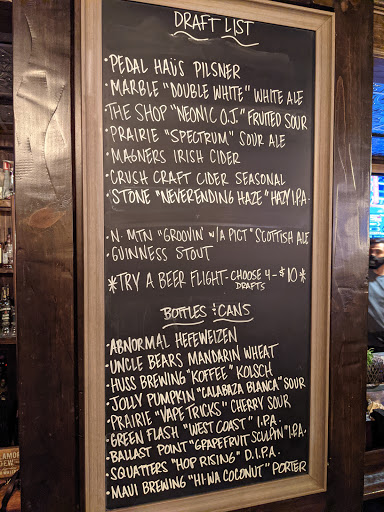 DRAFT LIST
· PEDAL HAÜS PILSNER
· MARBLE "DOUBLE WHITE" WHITE ALE
· THE SHOP "NEONIC O.J." FRUITED SOUR
· PRAIRIE "SPECTRUM" SOUR ALE
· MAGNERS IRISH CIDER
· CRUSH CRAFT CIDER SEASONAL
· STONE "NEVERENDING HAZE" HAZY I.P.A.
· N. MTN "GROOVIN' W/A PICT" SCOTTISH ALE
· GUINNESS STOUT
*TRY A BEER FLIGHT- CHOOSE 4 DRAFTS - $10*
BOTTLES & CANS
· ABNORMAL HEFEWEIZEN
· UNCLE BEARS MANDARIN WHEAT
· HUSS BREWING "KOFFEE" KOLSCH
· JOLLY PUMPKIN "CALABAZA BLANCA" SOUR
· PRAIRIE "VAPE TRICKS" CHERRY SOUR
· GREEN FLASH "WEST COAST" I.P.A.
· BALLAST POINT "GRAPEFRUIT SCULPIN" I.P.A.
· SQUATTERS "HOP RISING" D.I.P.A.
· MAUI BREWING "HI·WA COCONUT" PORTER